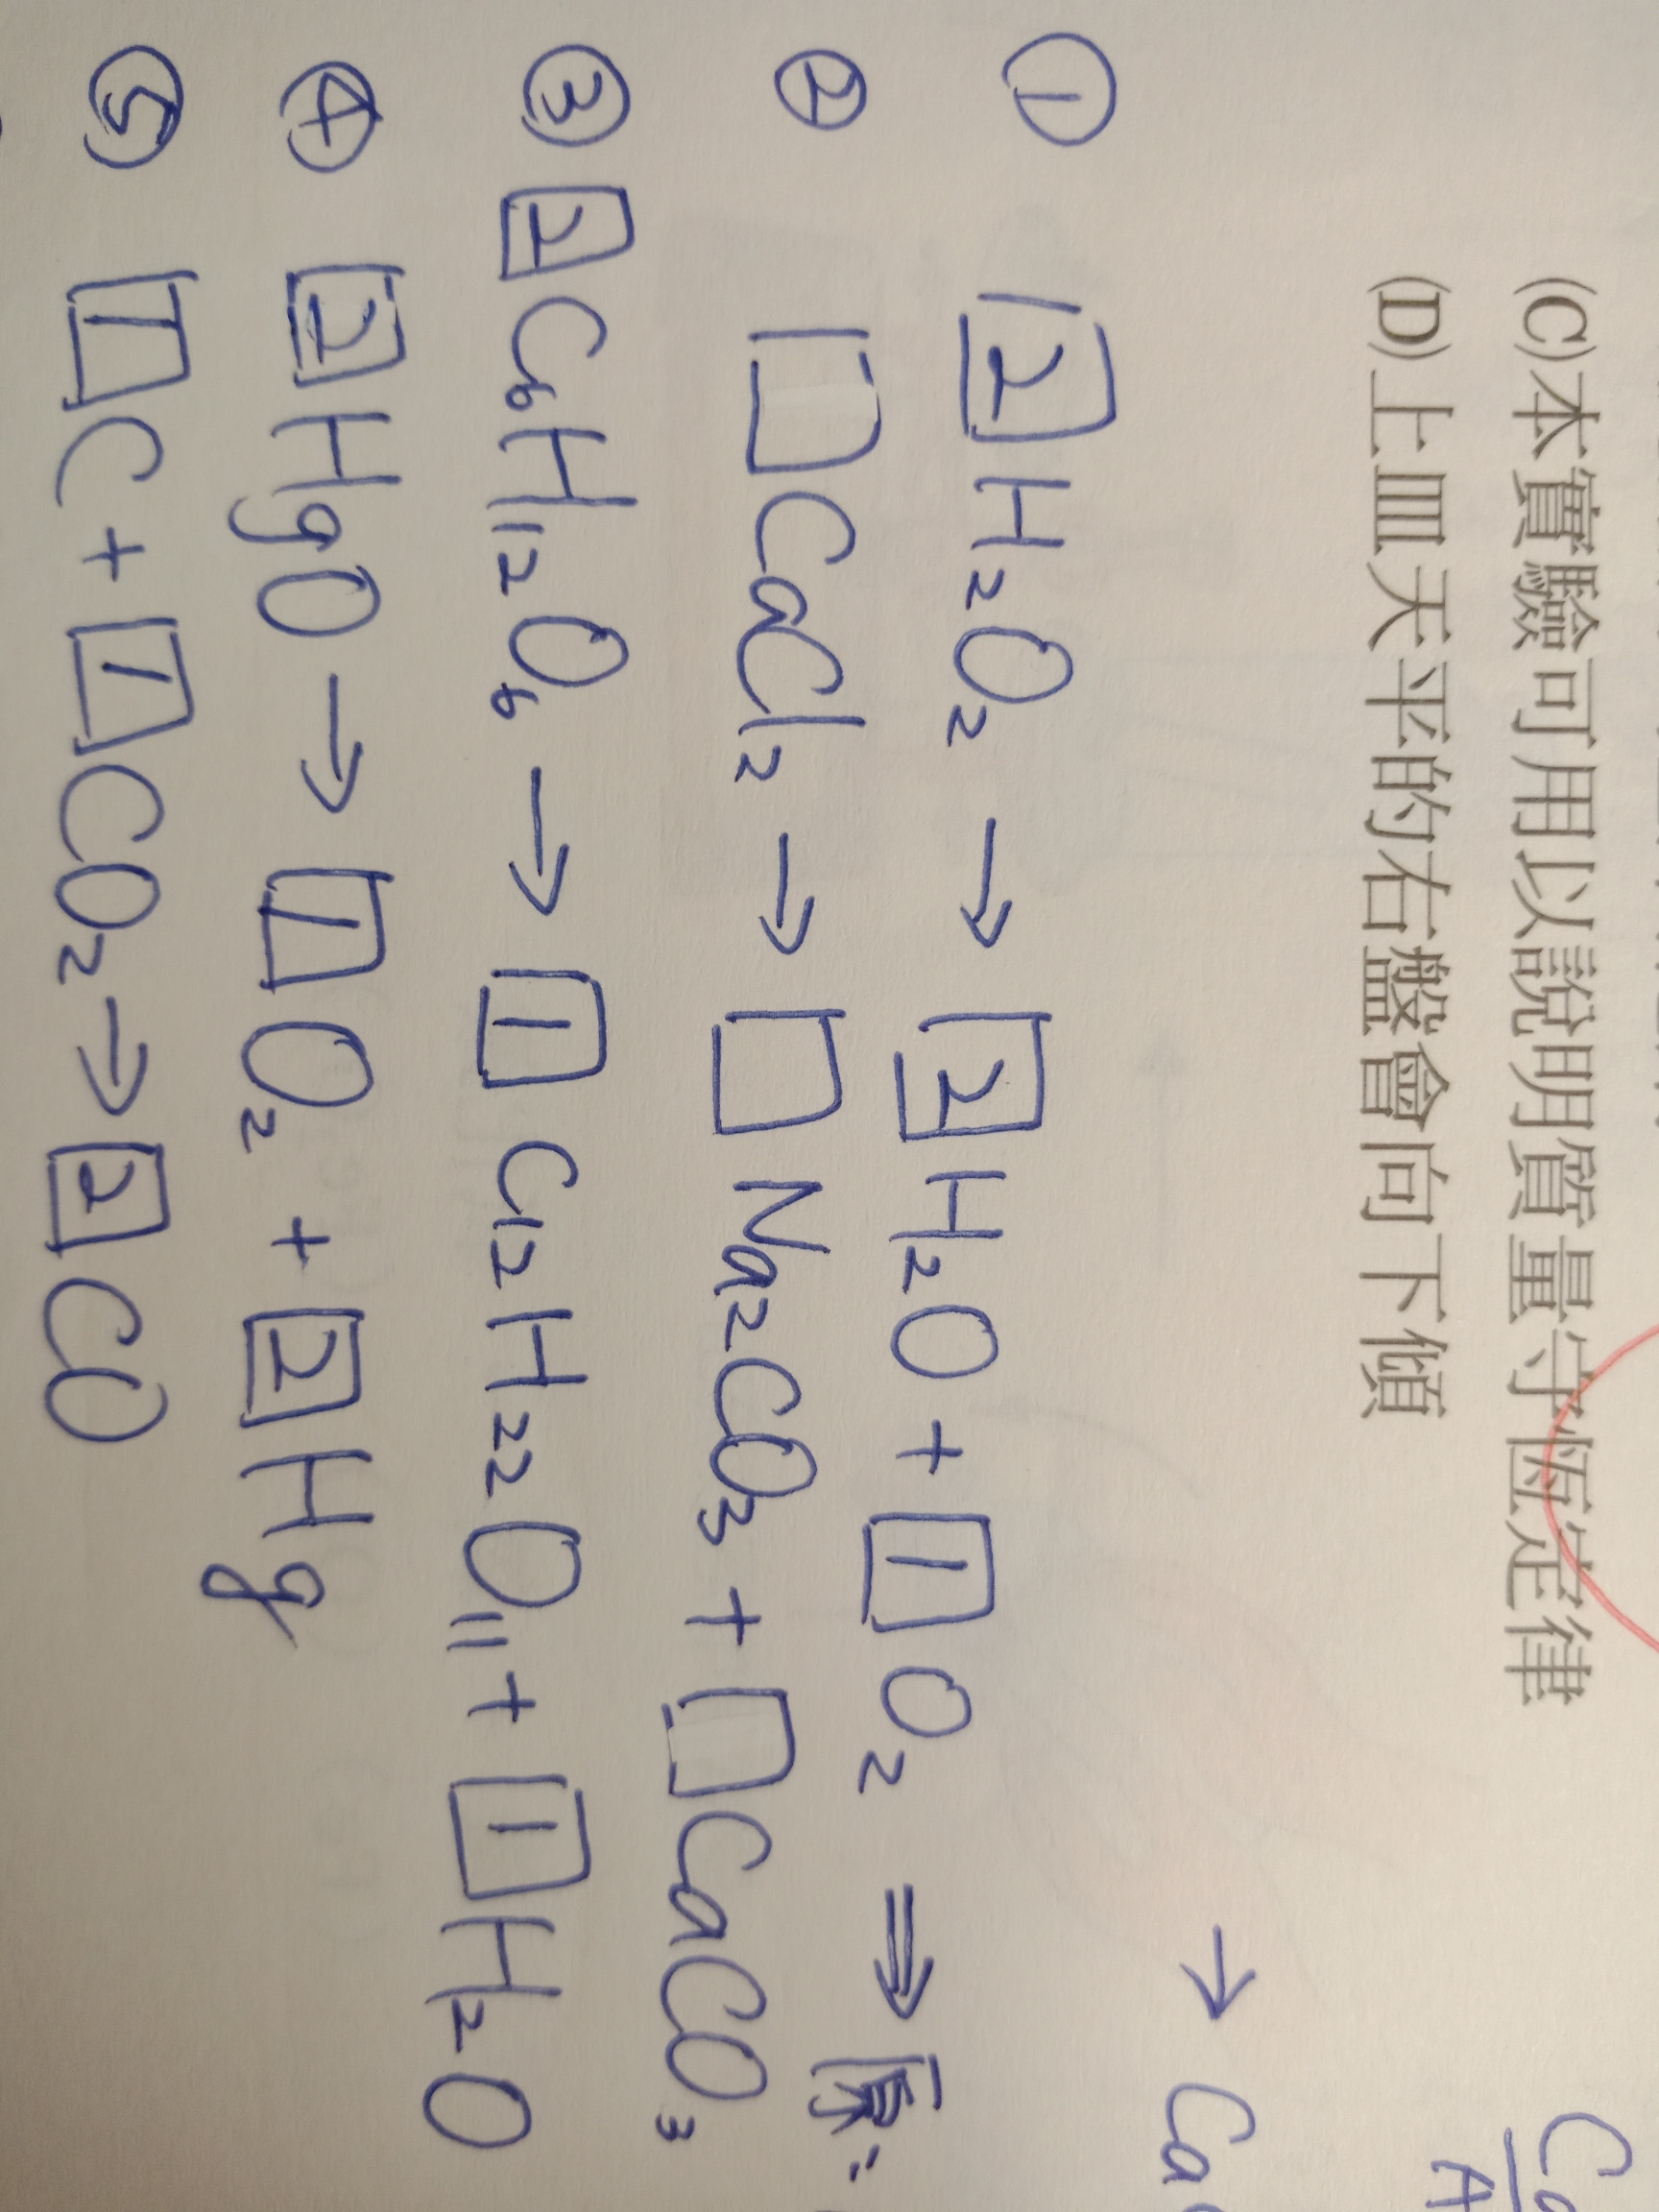 (C)本實驗可用以說明質量守恆定律
(D)上皿天平的右盤會向下傾
→ Ca
① 2 H₂O₂ → 2 H₂O + 1 O₂ ⇒
② □ CaCl₂ → □ Na₂CO₃ + □ CaCO₃
③ 2 C₆H₁₂O₆ → 1 C₁₂H₂₂O₁₁ + 1 H₂O
④ 2 HgO → 1 O₂ + 2 Hg
⑤ 1 C + 1 CO₂ → 2 CO